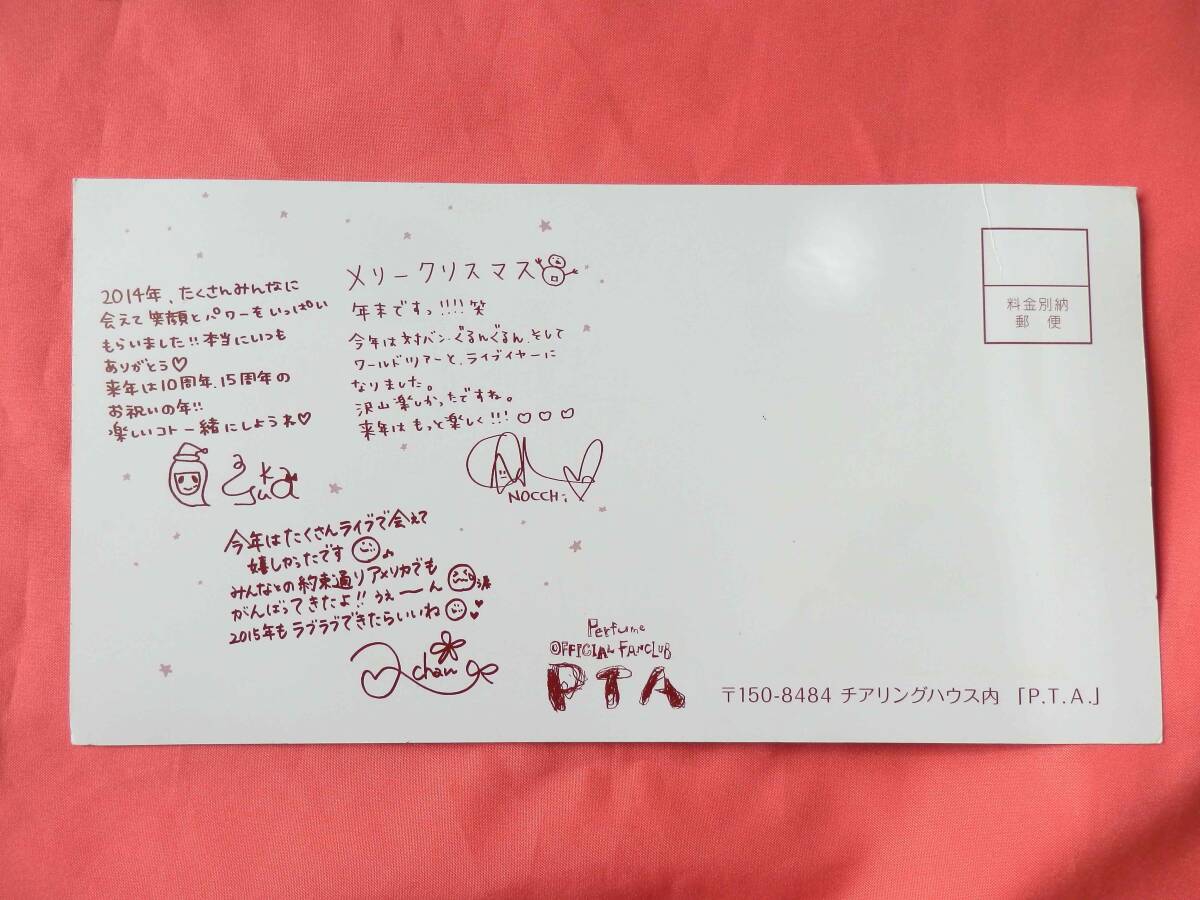 2014年、たくさんみんなに
会えて笑顔とパワーをいっぱい
もらいました!!本当にいつも
ありがとう♡
来年は10周年、15周年の
お祝いの年!!
楽しいコト一緒にしようね♡
メリークリスマス
年末ですっ!!!!笑
今年は対バン、ぐるんぐるん、そして
ワールドツアーと、ライブイヤーに
なりました。
沢山楽しかったですね。
来年はもっと楽しく!!! ♡♡♡
NOCCHi
今年はたくさんライブで会えて
嬉しかったです
みんなとの約束通りアメリカでも
がんばってきたよ!! うぇーーん
2015年もラブラブできたらいいね
chan
Perfume
OFFICIAL FANCLUB
PTA
料金別納
郵便
〒150-8484 チアリングハウス内 「P.T.A.」